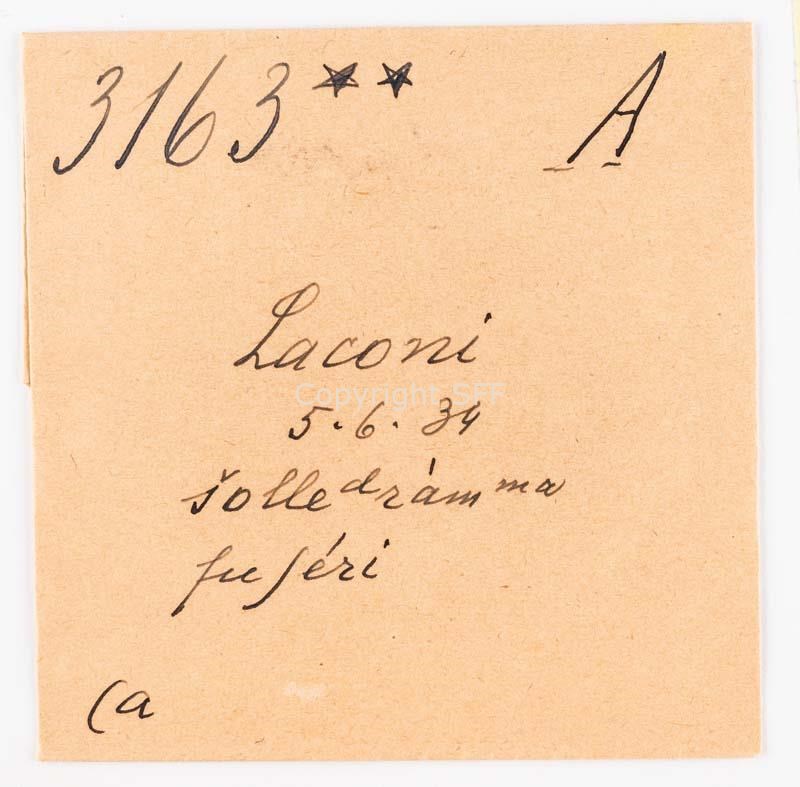 3163** A
Laconi
Copyright SFF
5.6.34
šolledrámma
fuſéri
(a